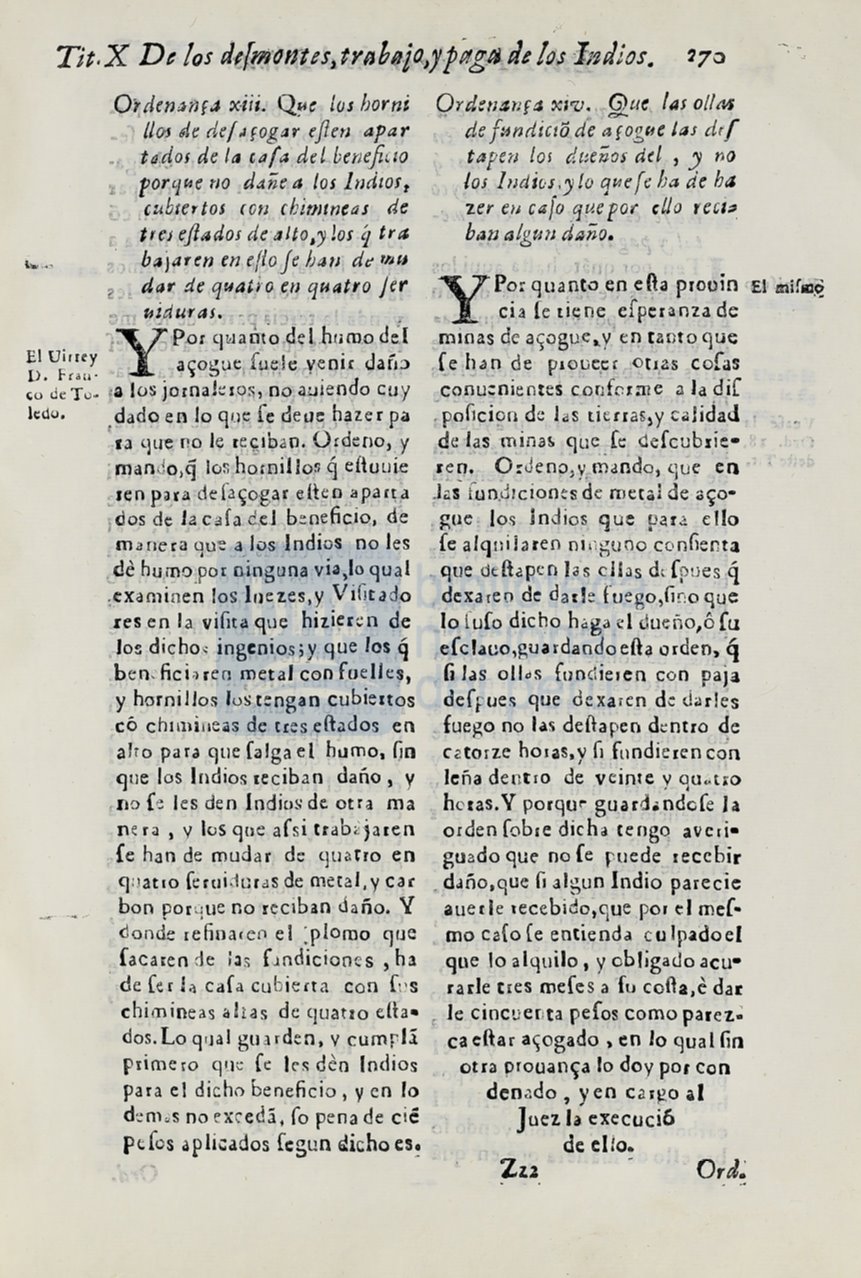 Tit. X De los desmontes, trabajo, y paga de los Indios. 270
Ordenança xiii. Que los horni
llos de desaçogar esten apar
tados de la casa del beneficio
porque no dañe a los Indios,
cubiertos con chimineas de
tres estados de alto, y los q̃ tra
bajaren en esto se han de mu
dar de quatro en quatro ser
uiduras.
El Uirrey
D. Fran-
co de To-
ledo.
YPor quanto del humo del
açogue suele venir daño
a los jornaleros, no auiendo cuy
dado en lo que se deue hazer pa
ra que no le reciban. Ordeno, y
mando, q̃ los hornillos q̃ estuuie
ren para desaçogar esten aparta
dos de la casa del beneficio, de
manera que a los Indios no les
dè humo por ninguna via, lo qual
examinen los Iuezes, y Visitado
res en la visita que hizieren de
los dichos ingenios; y que los q̃
beneficiaren metal con fuelles,
y hornillos los tengan cubiertos
cō chimineas de tres estados en
alto para que salga el humo, sin
que los Indios reciban daño, y
no se les den Indios de otra ma
nera, y los que assi trabajaren
se han de mudar de quatro en
quatro seruiduras de metal, y car
bon porque no reciban daño. Y
donde refinaren el plomo que
sacaren de las fundiciones, ha
de ser la casa cubierta con sus
chimineas altas de quatro esta-
dos. Lo qual guarden, y cumplã
primero que se les dèn Indios
para el dicho beneficio, y en lo
demas no excedã, so pena de ciẽ
pesos aplicados segun dicho es.
Ordenança xiv. Que las ollas
de fundiciō de açogue las des
tapen los dueños del, y no
los Indios, y lo que se ha de ha
zer en caso que por ello reci-
ban algun daño.
El mismo
YPor quanto en esta prouin
cia se tiene esperanza de
minas de açogue, y en tanto que
se han de proueer otras cosas
conuenientes conforme a la dis
posicion de las tierras, y calidad
de las minas que se descubrie-
ren. Ordeno, y mando, que en
las fundiciones de metal de aço-
gue los Indios que para ello
se alquilaren ninguno consienta
que destapen las ollas despues q̃
dexaren de darle fuego, sino que
lo suso dicho haga el dueño, ô su
esclauo, guardando esta orden, q̃
si las ollas fundieren con paja
despues que dexaren de darles
fuego no las destapen dentro de
catorze horas, y si fundieren con
leña dentro de veinte y quatro
horas. Y porque guardandose la
orden sobre dicha tengo averi-
guado que no se puede recebir
daño, que si algun Indio parecie
auerle recebido, que por el mes-
mo caso se entienda culpado el
que lo alquilo, y obligado a cu-
rarle tres meses a su costa, è dar
le cincuenta pesos como parez-
ca estar açogado, en lo qual sin
otra prouança lo doy por con
denado, y en cargo al
Juez la execuciō
de ello.
Zzz Ord.